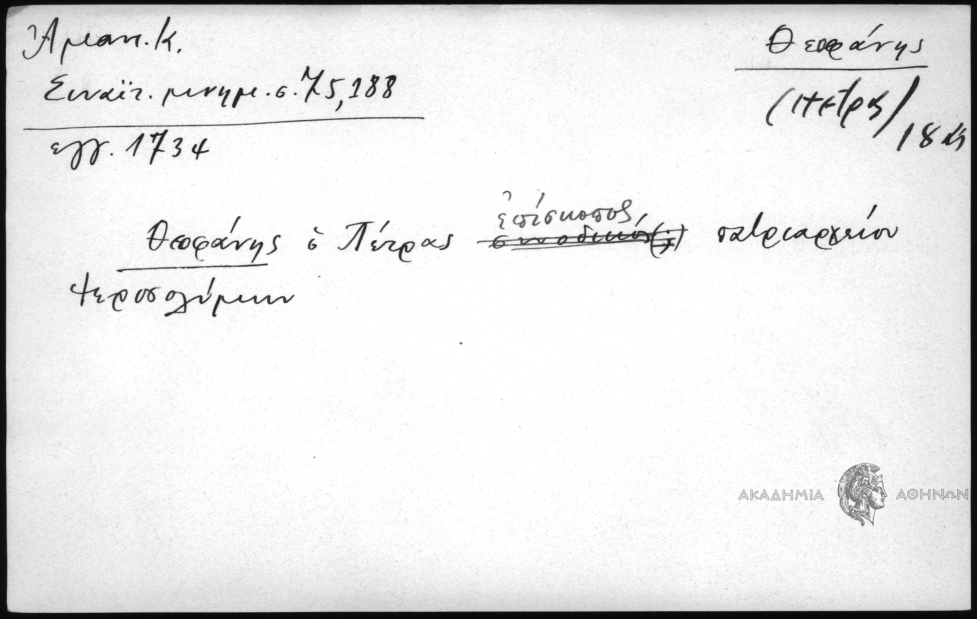 Ἀμαντ. Κ.
Σιναϊτ. μνημ. σ. 75,188
εγγ. 1734
Θεοφάνης
(Πέτρας)
18
Θεοφάνης ὁ Πέτρας ἐπίσκοπος συνοδικός(;) πατριαρχείου
Ἱεροσολύμων
ΑΚΑΔΗΜΙΑ ΑΘΗΝΩΝ